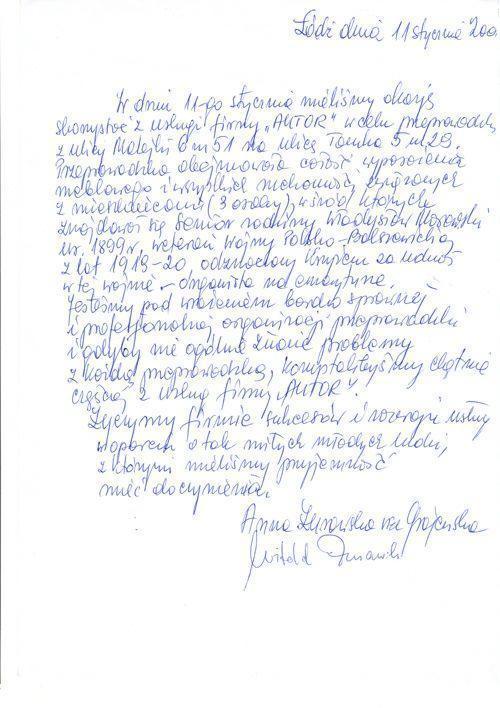 Łódź dnia 11 stycznia 200
W dniu 11-go stycznia mieliśmy okazję
skorzystać z usługi firmy „AUTOR" w celu przeprowadzki
z ulicy Matejki 6 m 51 na ulicę 5 m 28.
Przeprowadzka obejmowała całość wyposażenia
meblowego i wszystkich ruchomości związanych
z mieszkańcami (3 osoby), wśród których
znajdował się Senior rodziny Władysław
ur. 1899 r, weteran wojny Polsko-Bolszewickiej
z lat 1919-20 odznaczony Krzyżem za udział
w tej wojnie - organista na emeryturze.
Jesteśmy pod wrażeniem bardzo sprawnej
i profesjonalnej organizacji przeprowadzki
i gdyby nie ogólnie znane problemy
z każdą przeprowadzką, korzystalibyśmy chętnie
częściej z usług firmy „AUTOR".
Życzymy firmie sukcesów i rozwoju usług
w oparciu o tak miłych młodych ludzi,
z którymi mieliśmy przyjemność
mieć do czynienia.
Anna
Witold